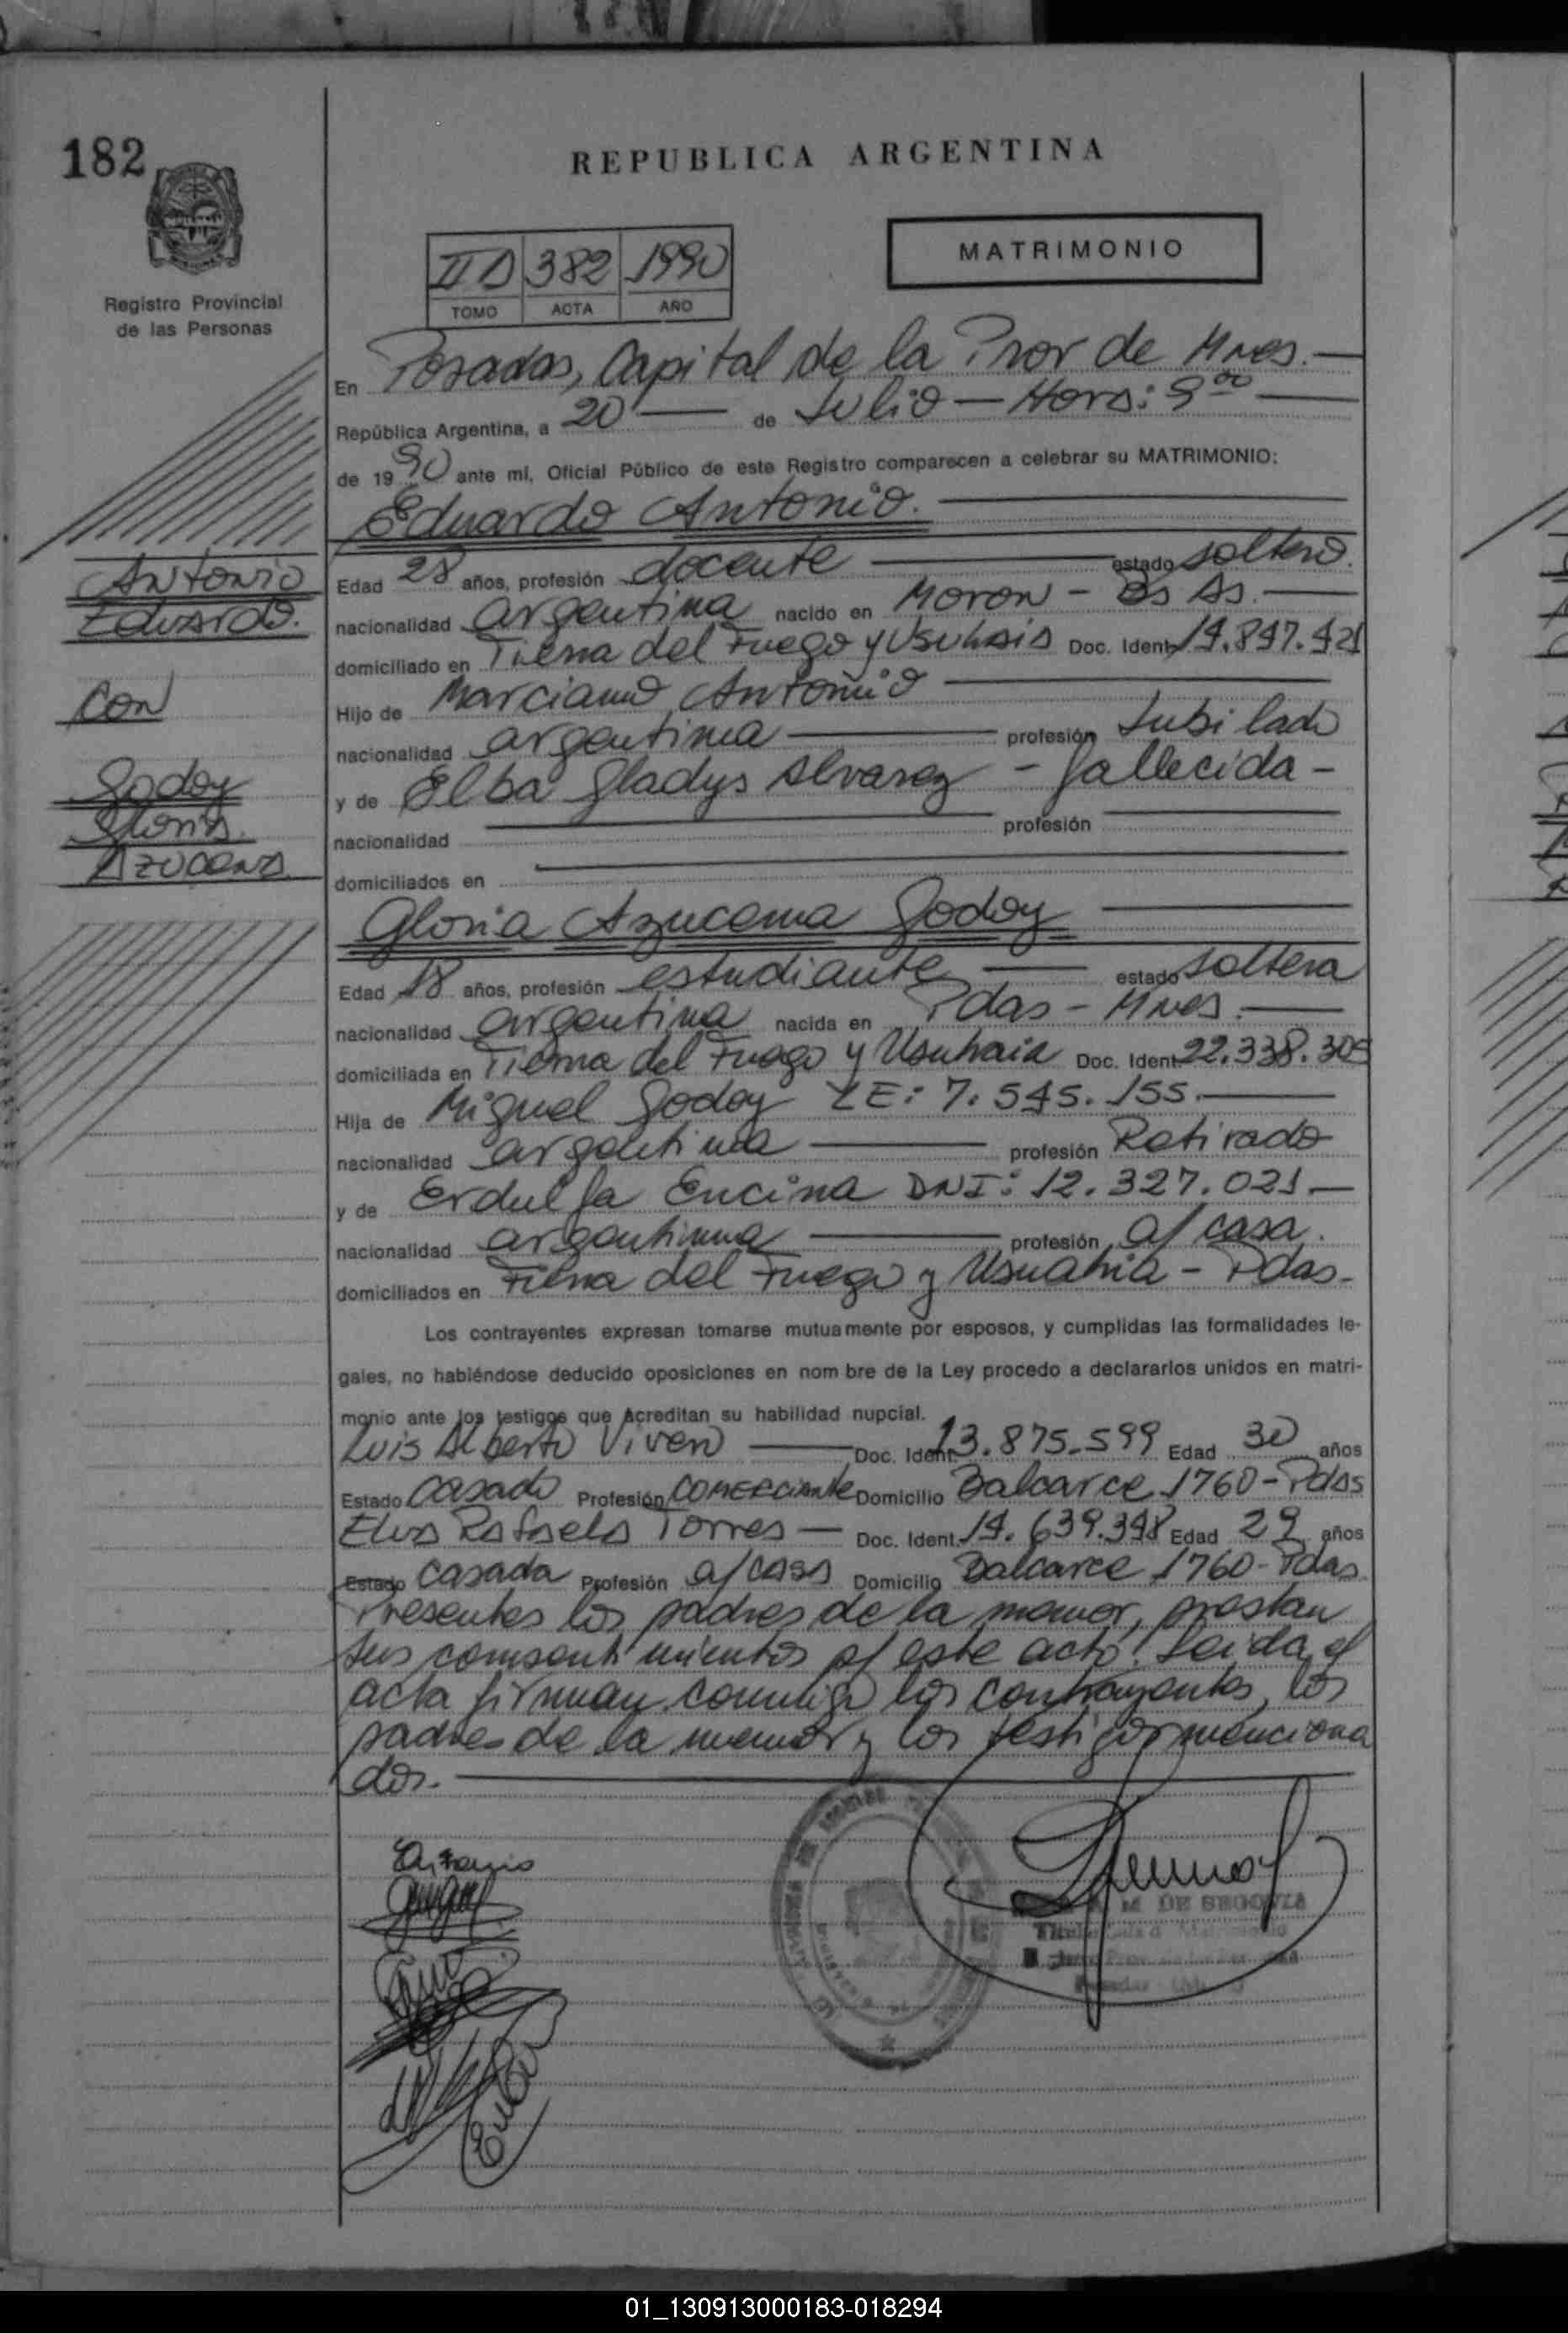 182
REPUBLICA ARGENTINA
MATRIMONIO
II D 382 1990
TOMO ACTA AÑO
Registro Provincial
de las Personas
En Posadas, Capital de la Prov de Mnes.
República Argentina, a 20 de Julio - Hora: 9 00
de 1990 ante mí, Oficial Público de este Registro comparecen a celebrar su MATRIMONIO:
Eduardo Antonio.
Antonio
Eduardo.
con
Godoy
Gloria
Azucena
Edad 28 años, profesión docente estado soltero.
nacionalidad argentina nacido en Moron - Bs As.
domiciliado en Tierra del Fuego y Usuhaia Doc. Ident. 14.897.421
Hijo de Marciano Antonio
nacionalidad argentina profesión Jubilado
y de Elba Gladys Alvarez - fallecida -
nacionalidad profesión
domiciliados en
Gloria Azucena Godoy
Edad 18 años, profesión estudiante estado soltera
nacionalidad argentina nacida en Pdas - Mnes.
domiciliada en Tierra del Fuego y Usuhaia Doc. Ident. 22.338.305
Hija de Miguel Godoy LE: 7.545.155.
nacionalidad argentina profesión Retirado
y de Erdulfa Encina DNI: 12.327.021
nacionalidad argentina profesión a/ casa.
domiciliados en Tierra del Fuego y Usuahia - Pdas.
Los contrayentes expresan tomarse mutuamente por esposos, y cumplidas las formalidades le-
gales, no habiéndose deducido oposiciones en nom bre de la Ley procedo a declararlos unidos en matri-
monio ante los testigos que acreditan su habilidad nupcial.
Luis Alberto Vivero Doc. Ident. 13.875.599 Edad 30 años
Estado Casado Profesión comerciante Domicilio Balcarce 1760 - Pdas
Elva Rafaela Torres Doc. Ident. 14.639.348 Edad 29 años
Estado Casada Profesión a/casa Domicilio Balcarce 1760 - Pdas.
Presentes los padres de la menor, prestan
sus consentimientos p/ este acto. Leida el
acta firman conmigo los contrayentes, los
padres de la menor y los testigos menciona
dos.
Antonio
M DE SEGOVIA
01_130913000183-018294